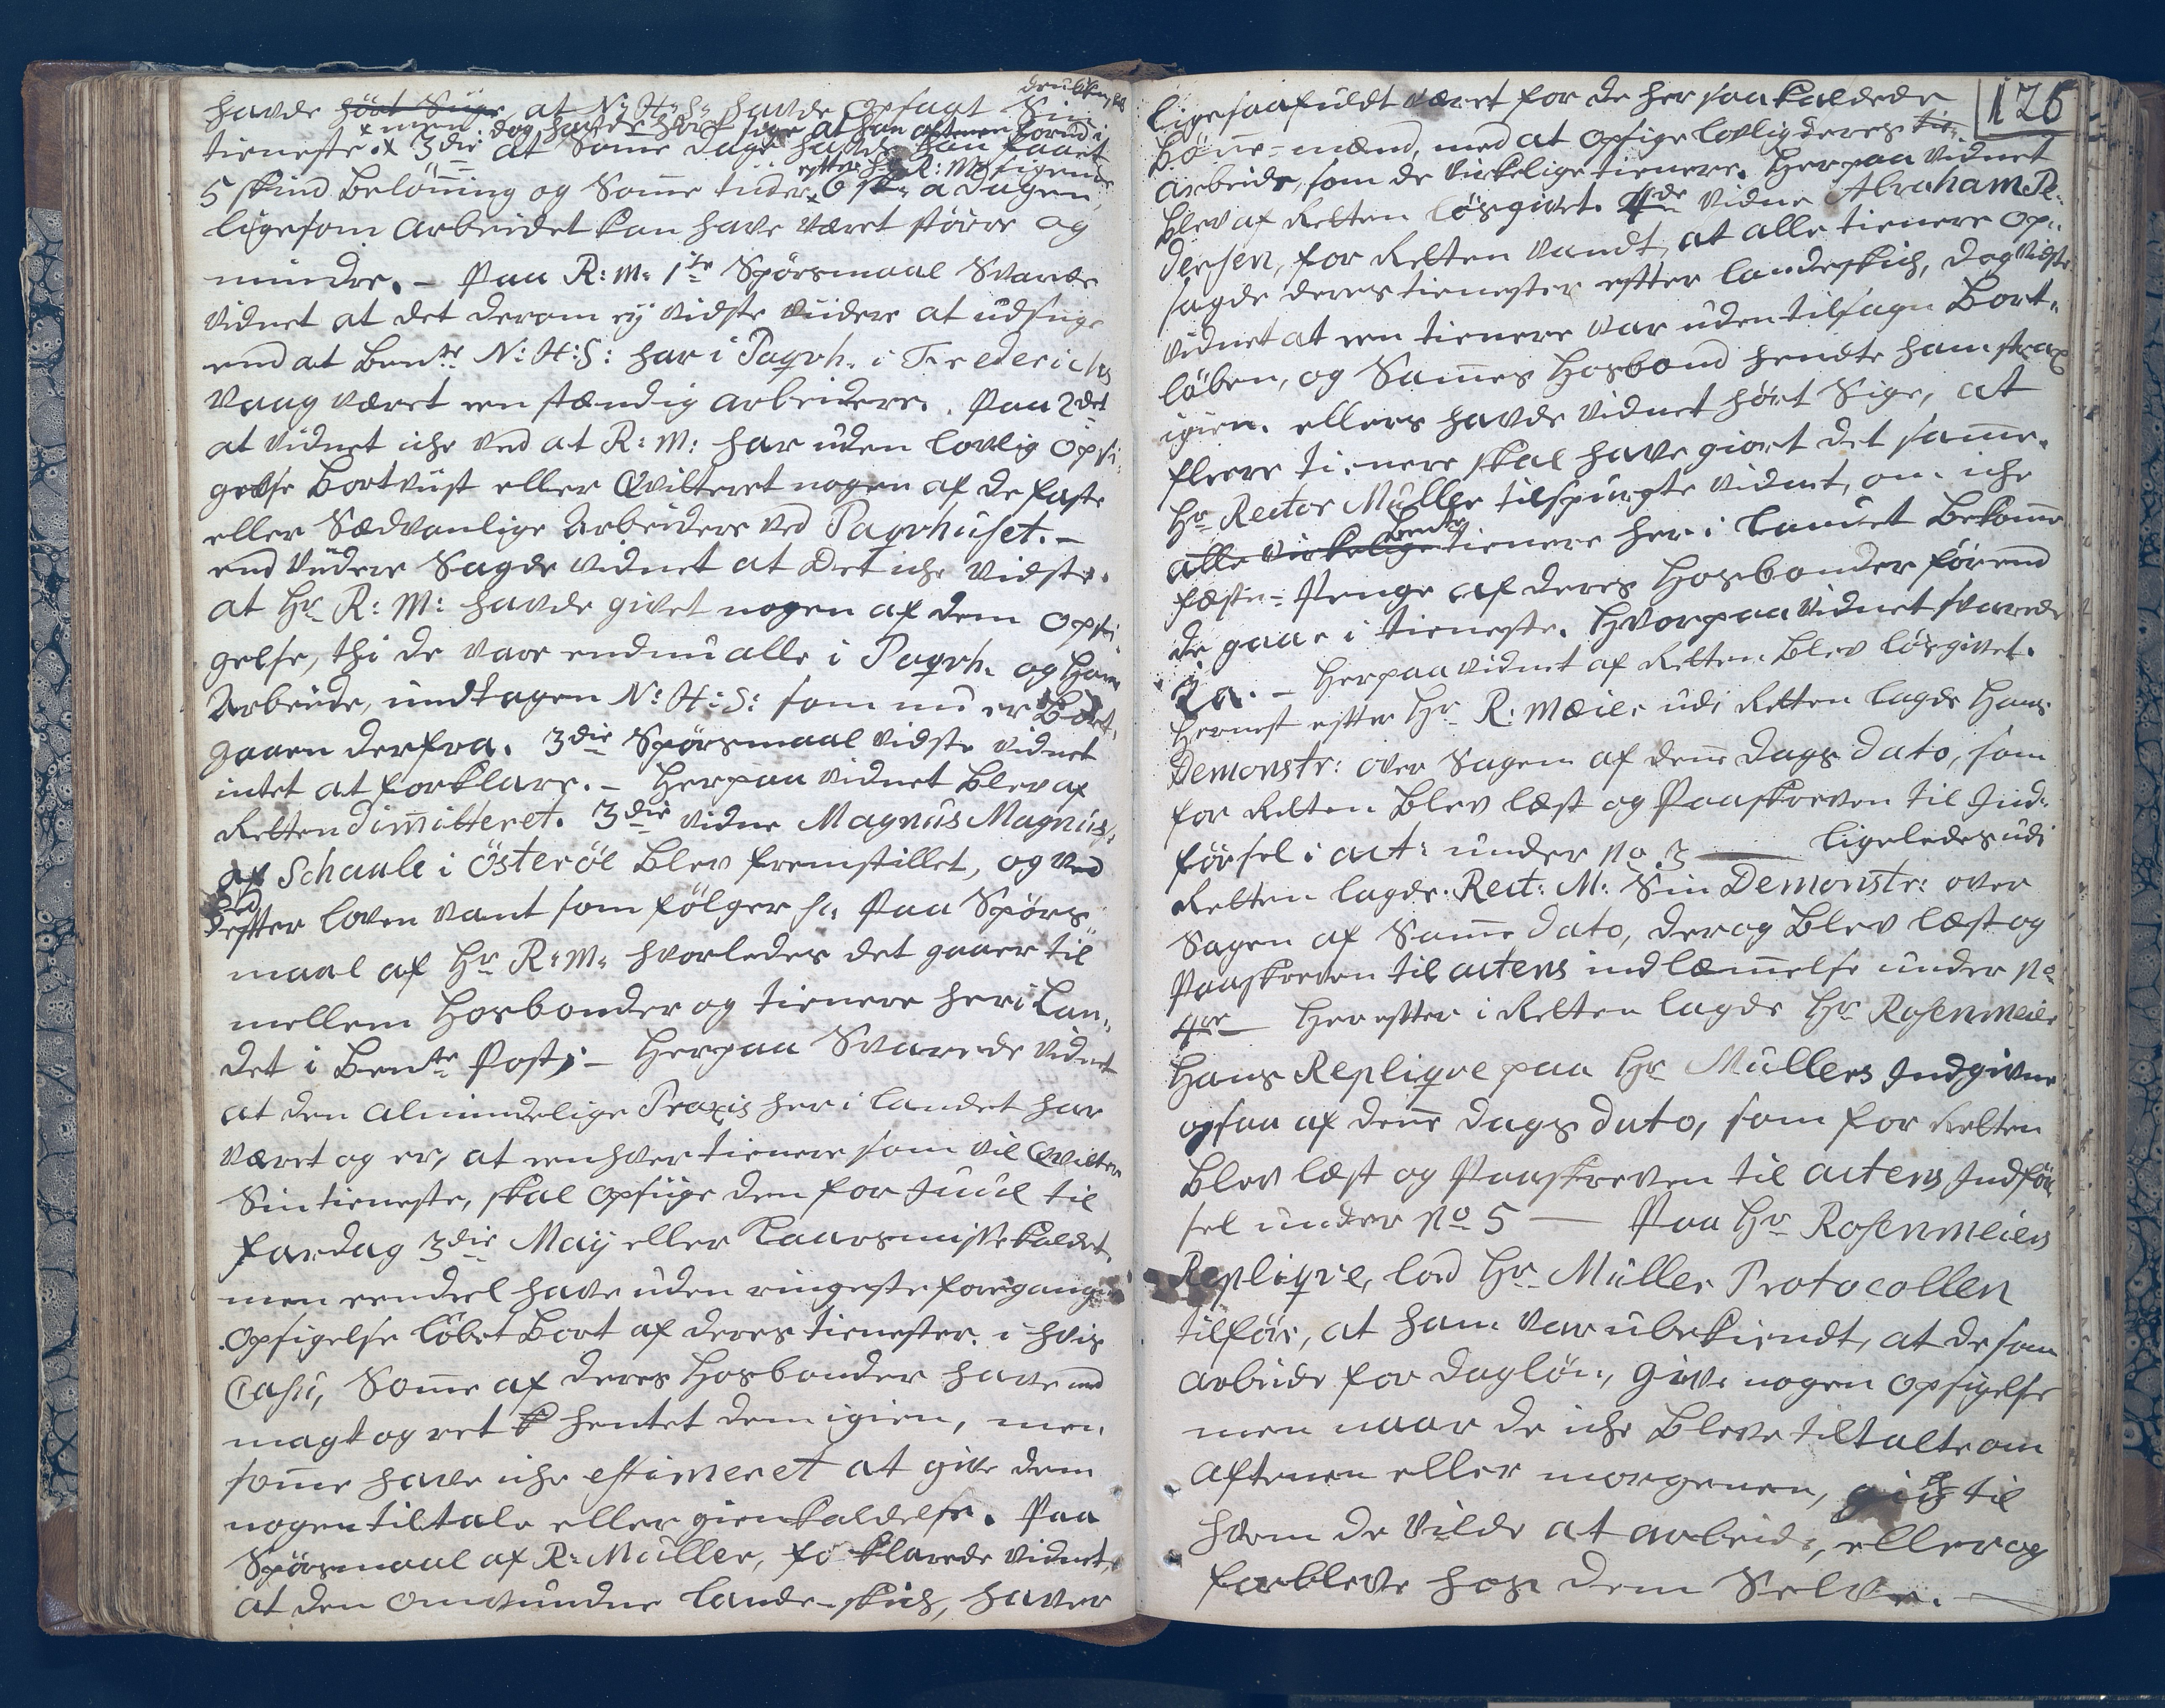 havde hört Sige at N: H: S: havde opsagt Sin
tieneste. x 3die at Somme Dage havde han faaet
x men dog havde hört sige at han aftenen forud i
5 skind Belönning og Somme tider x 6 sk: a Dagen,
efter Hr R: M: sigende
ligesom arbeidet kan have været större og
mindre. – Paa R: M: 1te Spörsmaal Svarede
Vidnet at det derom ey vidste viidere at udsige
end at Bente N: H: S: har i Paqvh. i Friderichs
Vaag været en stændig arbeidere. Paa 2det
at Vidnet iche ved at R: M: har uden lovlig Opsi-
gelse Bortviist eller Qvitteret nogen af de faste
eller Sædvanlige Arbeidere ved Paqvhuset. –
end viidere Sagde vidnet at Det iche vidste.
at Hr R: M: havde givet nogen af dem Opsi-
gelse, thi de vare endnu alle i Paqvh. og Hans
Arbeide, undtagen N: H: S: som nu er Bort-
gaaen derfra. 3die Spörsmaal vidste Vidnet
intet at forklare. – Herpaa Vidnet Blev af
Retten dimitteret. 3die Vidne Magnus Magnus:
af Schaale i Österöe Blev fremstillet, og ved
Eed
efter loven vant som fölger sc: Paa Spörs-
maal af Hr R: M: hvorledes det gaaer til
mellem Hosbonder og tienere her i Lan-
det i Bente Post; – Herpaa Svarede Vidnet
at den almindelige Praxis her i landet har
været og er, at enhver tienere som vil Qvittere
Sin tieneste, skal Opsiige den for Juul til
fardag 3die Maij eller Kaarsmisse kaldet.
men eendeel have uden ringeste foregangen
Opsigelse löbet Bort af deres tienester. i hvis
Casu, Somme af deres Hosbonder have med
magt og ret hentet dem igien, men
somme have iche estimeret at give dem
nogen tiltale eller gienkaldelse. Paa
Spörsmaal af R: Müller, forklarede Vidnet,
at den omvundne lands-skich, haver
126
ligesaafuldt været for de her saa kaldede
Bönne-mænd, med at opsige lovlig deres
arbeide, som de virkelige tienere. Herpaa Vidnet
Blev af Retten lösgivet. 4de Vidne Abraham Pe-
dersen, for Retten Vandt, at alle tienere op-
sagde deres tienester efter landsskich, dog vidste
Vidnet at een tienere var uden tilsagn Bort-
löben, og Sammes Hosbond hendte ham strax
igien. ellers havde Vidnet hört Sige, at
fleere tienere skal have giort det samme.
Hr Rector Müller tilspurgte Vidnet, om iche
alle virkelige tienere her i landet Bekomme
fæste-Penge af deres Hosbonder förend
de gaar i tieneste. Hvorpaa Vidnet svarede
Ja. – Herpaa Vidnet af Retten Blev lösgivet.
Hernest efter Hr R: Meier udi Retten lagde Hans
Demonstr: over Sagen af denne Dags Dato, som
for Retten Blev læst og Paaskreven til Ind-
försel i act: under No 3 — ligeledes udi
Retten lagde Rect: M: Sin Demonstr: over
Sagen af Samme Dato, der og Blev læst og
Paaskreven til actens indlæmmelse under No
4re — Her efter i Retten lagde Hr Rosenmeier
Hans Repliqve paa Hr Müllers Indgivne
ogsaa af denne Dags Dato, som for Retten
Blev læst og Paaskreven til actens Indför-
sel under No 5 — Paa Hr Rosenmeiers
Repliqve, lod Hr Müller Protocollen
tilföre, at ham var ubekiendt, at de som
arbeide for Daglön, give nogen opsigelse
men naar de iche Bleve tiltalte om
aftenen eller morgenen, gik til
hvem de vilde at arbeide, eller og
forbleve hos dem Selve. —